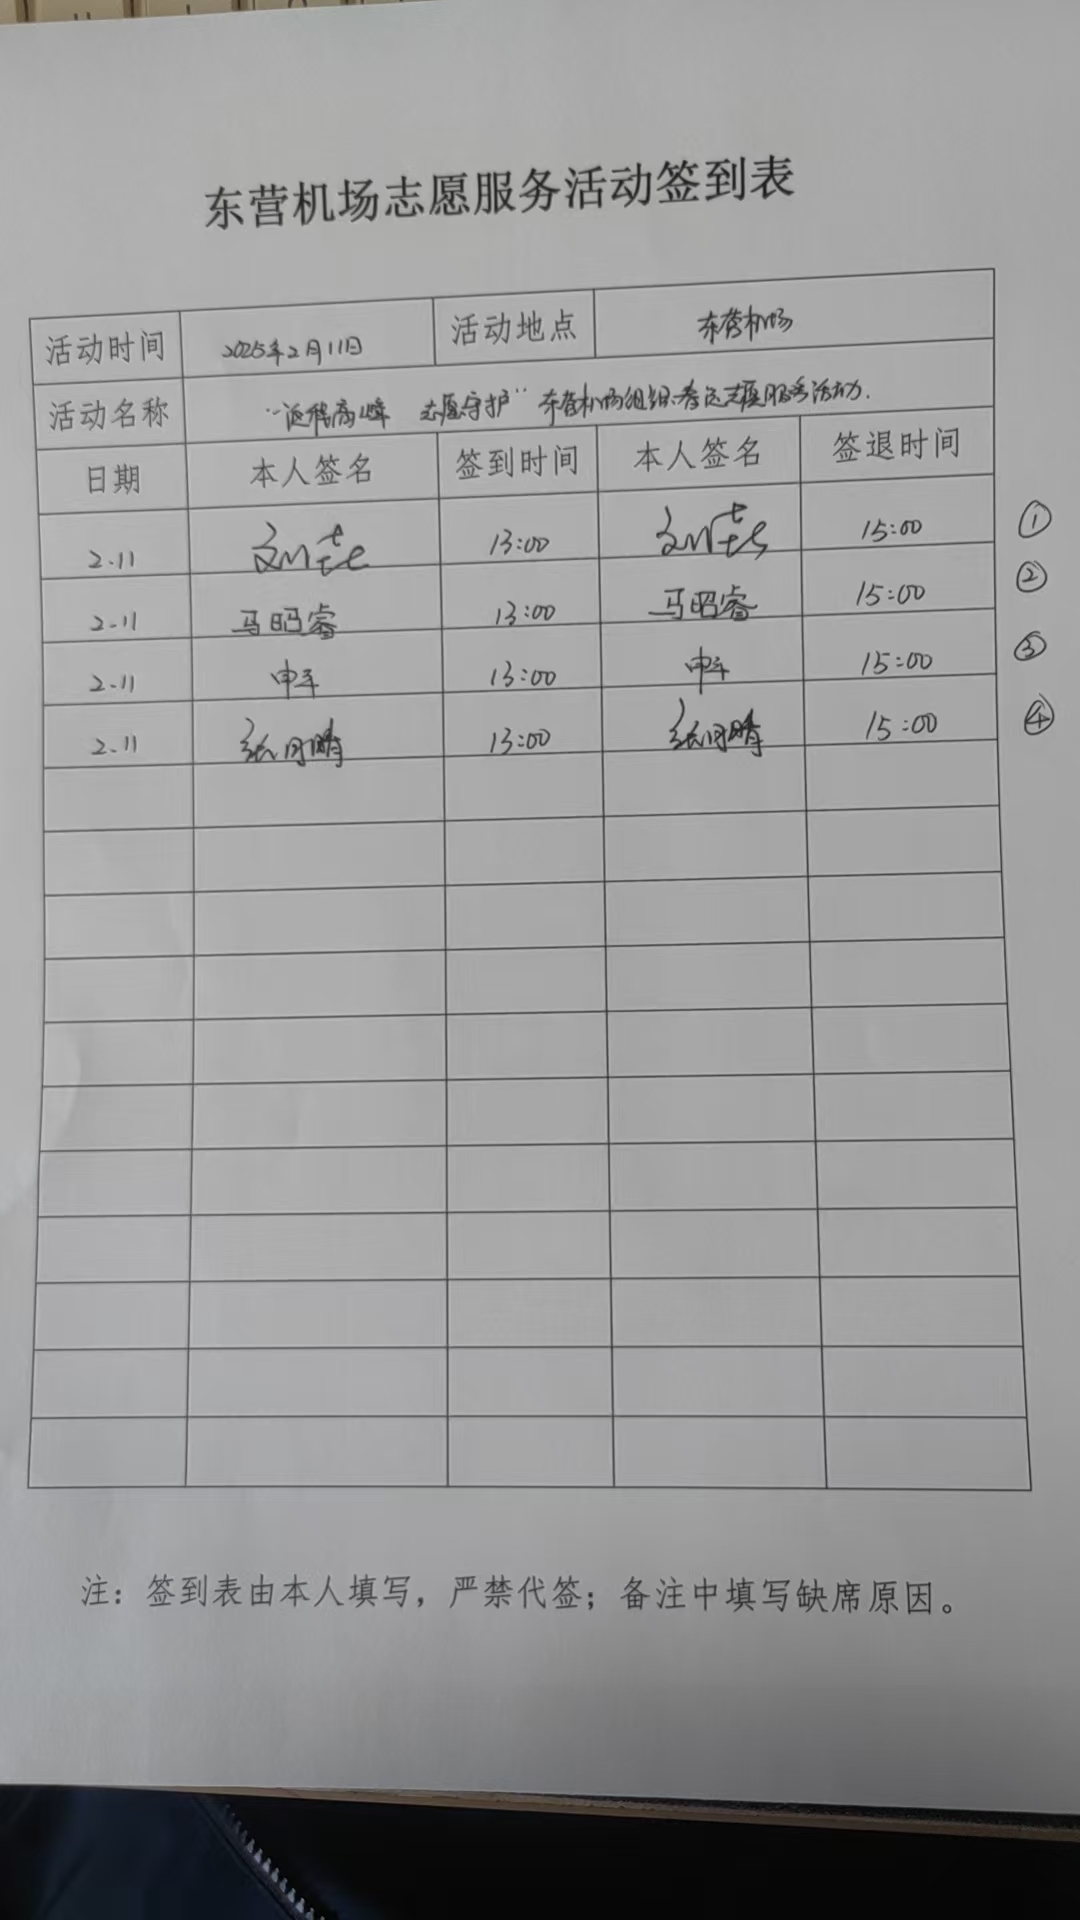 东营机场志愿服务活动签到表
活动时间 2025年2月11日 活动地点 东营机场
活动名称 "返程高峰 志愿守护"东营机场组织春运志愿服务活动.
日期 本人签名 签到时间 本人签名 签退时间
2.11 13:00 15:00 ①
2-11 马昭睿 13:00 马昭睿 15:00 ②
2-11 申军 13:00 申军 15:00 ③
2.11 13:00 15:00 ④
注：签到表由本人填写，严禁代签；备注中填写缺席原因。